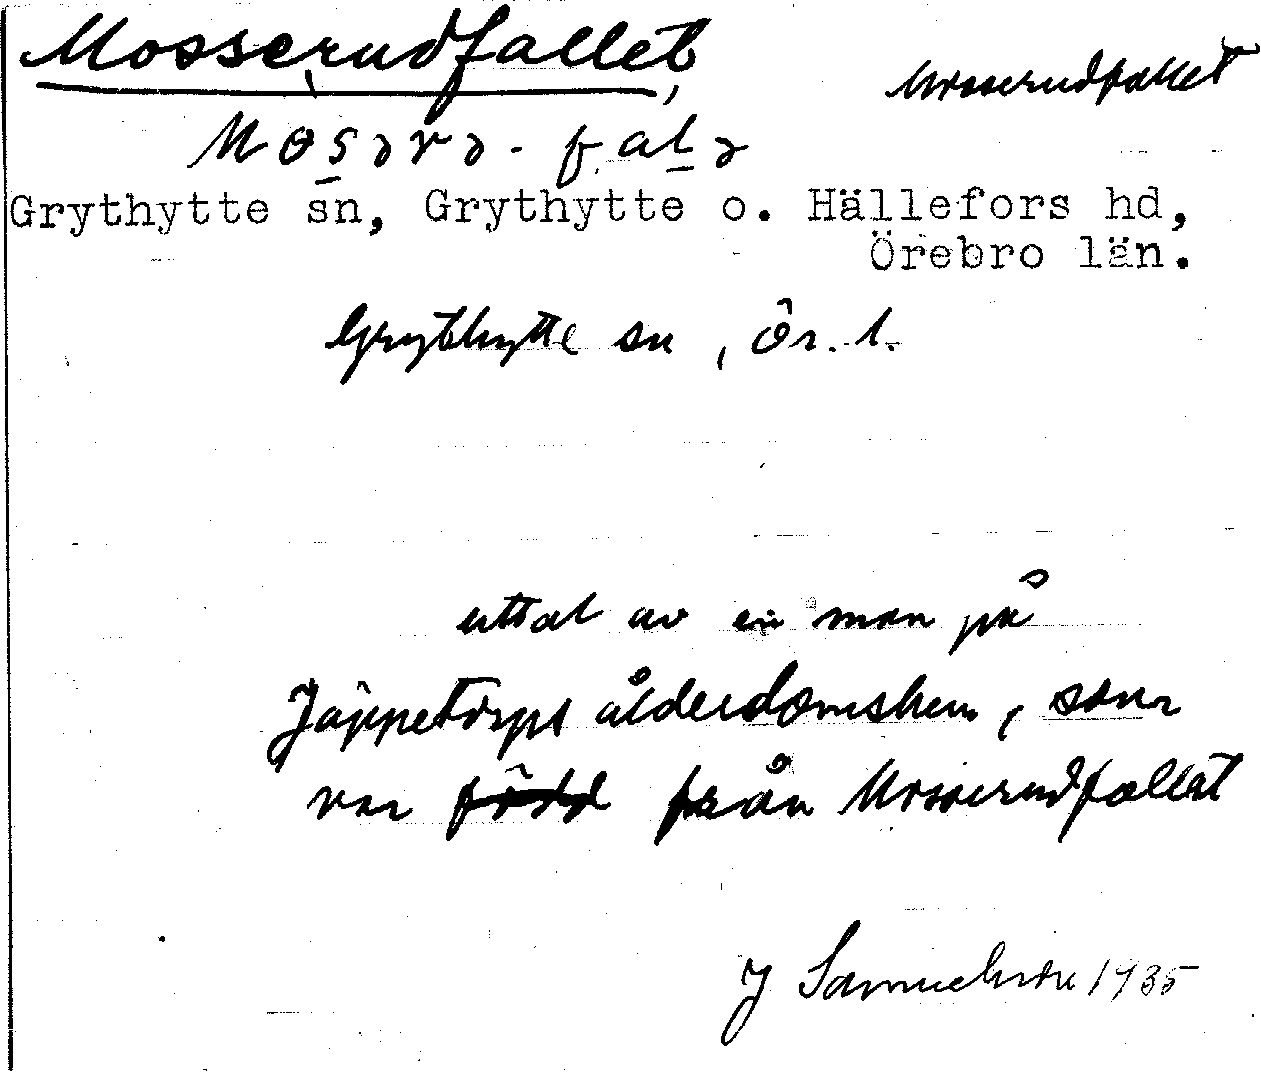 Mosserudfallet,
Mosserudfallet
Mos̠ərə-fal̠ə
Grythytte sn, Grythytte o. Hällefors hd,
Örebro län.
Grythytte sn, Ör. l.
uttal av en man på
Jäppetorps ålderdomshem, som
var född från Mosserudfallet
J Samuelsson 1935